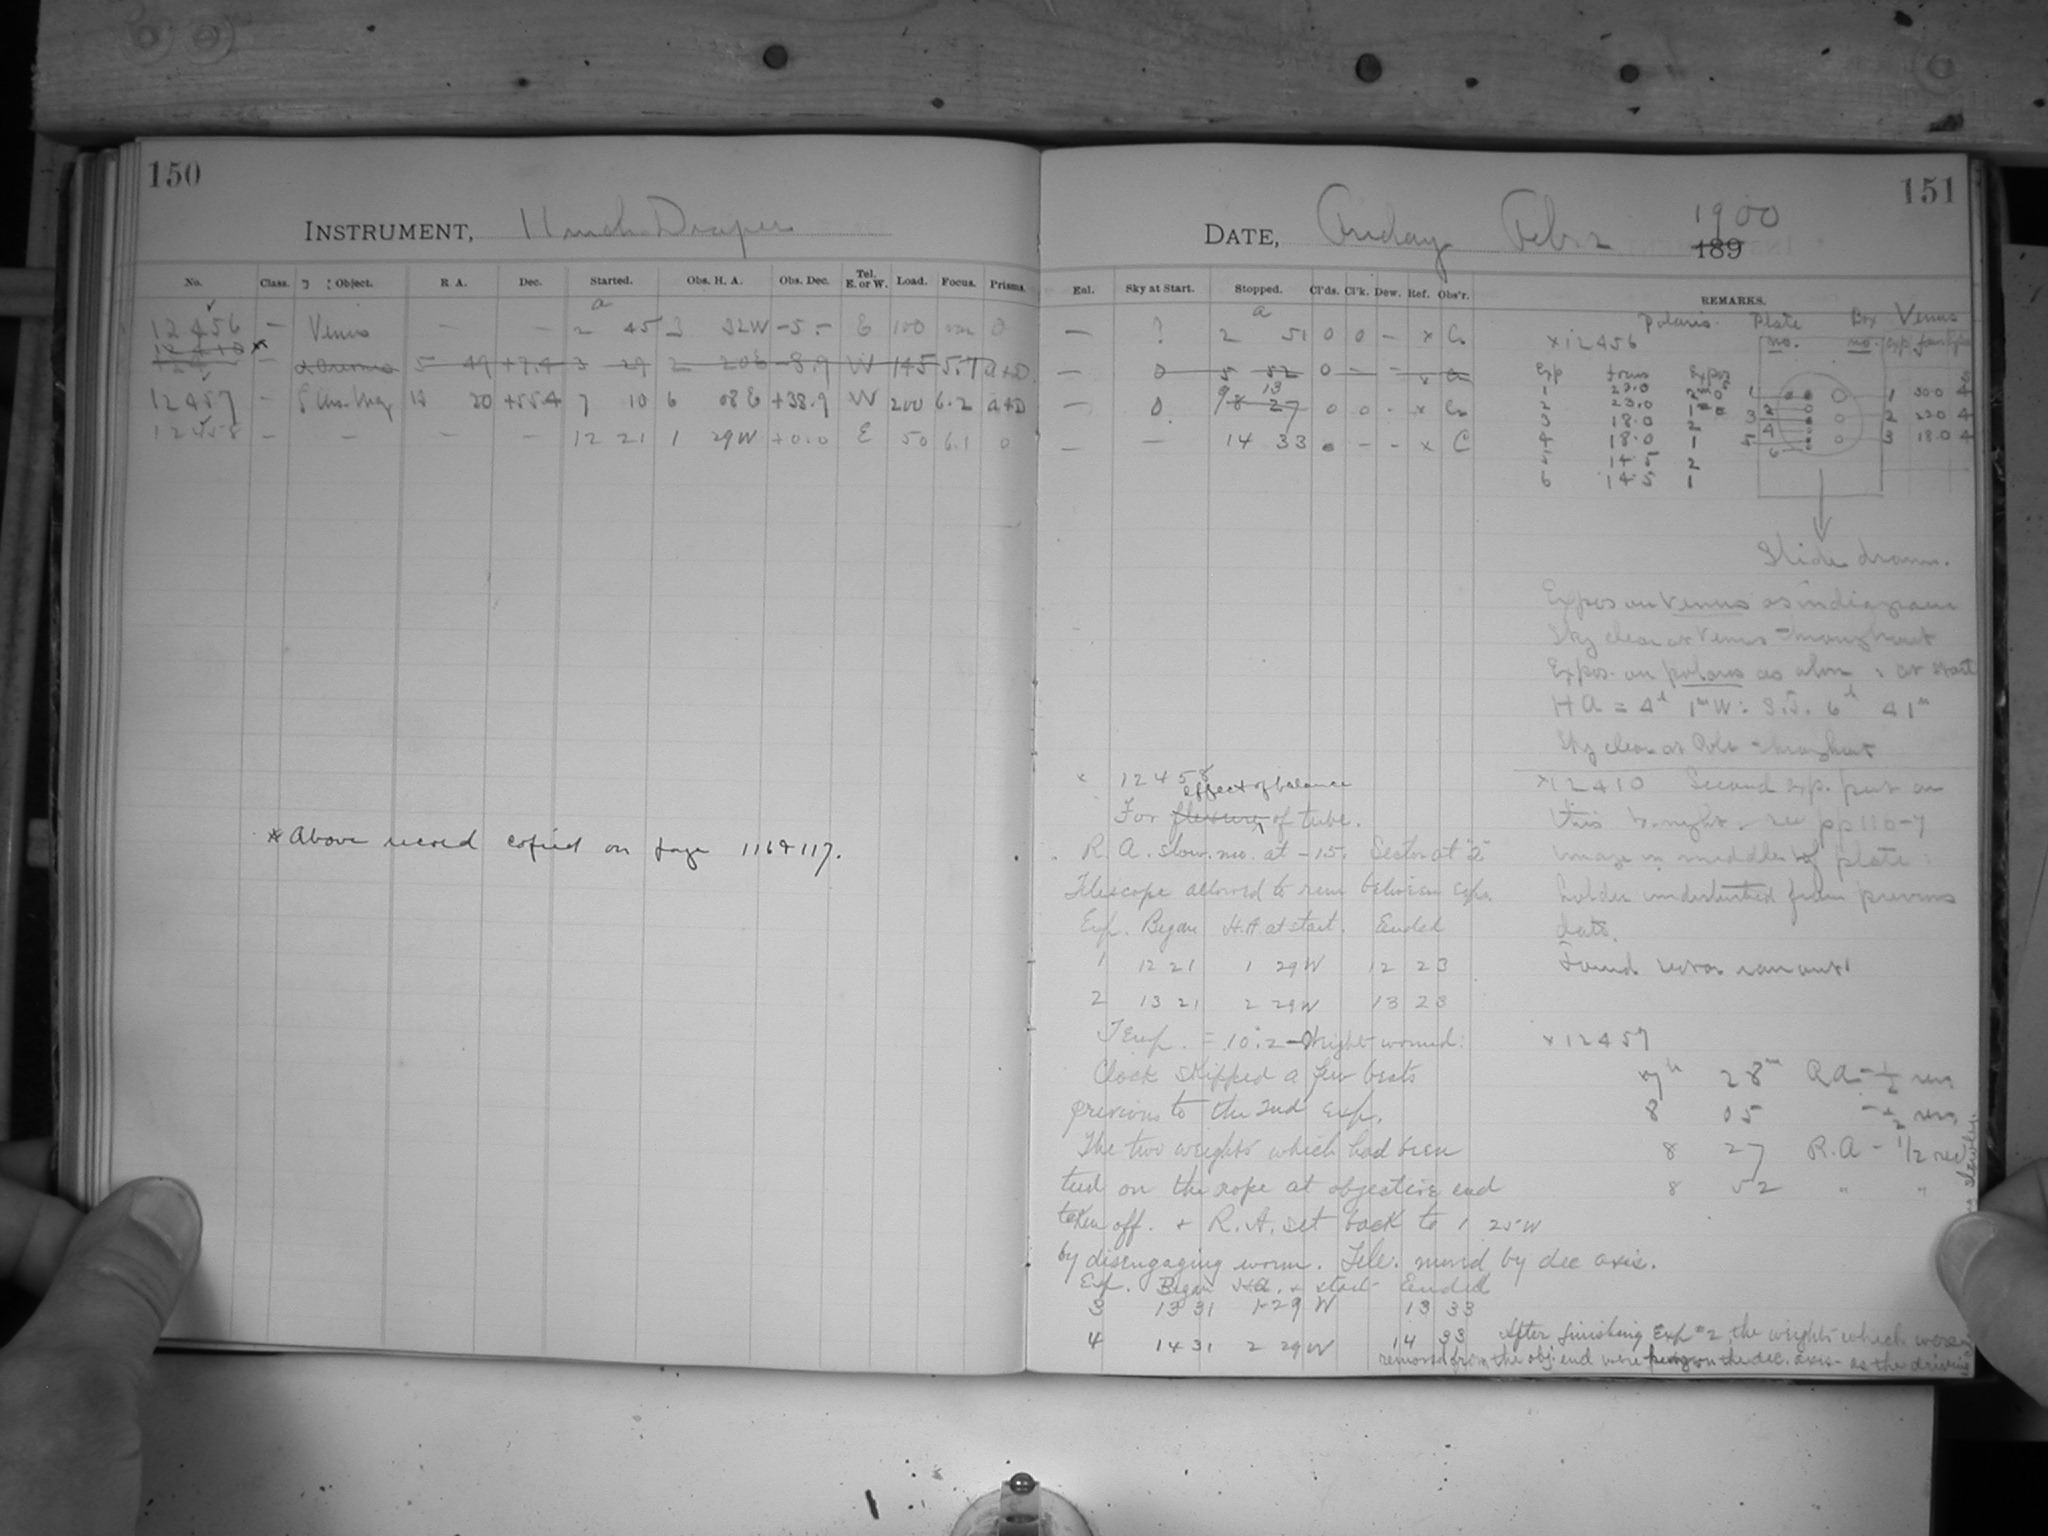 150
INSTRUMENT, 11 inch Draper
No. Class. Object. R. A. Dec. Started. Obs. H. A. Obs. Dec. Tel. E. or W. Load. Focus. Prisms.
a
12456 — Venus — — 2 45 3 32W -5.- E 100 var 0
5 49 +7.4 3 29 2 20E -8.9 W 145 5.7 a+D
12457 — 13 20 +55.4 7 10 6 08 E +38.9 W 200 6.2 a+D
12458 — — — — 12 21 1 29W +0.0 E 50 6.1 0
* Above record copied on page 116 & 117.
151
DATE, Friday Feb. 2 1900
189
Eal. Sky at Start. Stopped. Cl'ds. Cl'k. Dew. Ref. Obs'r. REMARKS.
a
— ? 2 51 0 0 - x C.
— 0 5 52 0 — - x
— 0 9 13 8 27 0 0 - x
— — 14 33 - - x C
Polaris. Plate no. Box no. Venus
x12456
Exp focus Expos
1 23.0 2m 0s
2 23.0 1
3 18.0 2
4 18.0 1
5 14.5 2
6 14.5 1
1 300 4
2 220 4
3 18.0 4
Slide drawn.
Expos on Venus as in diagram
Sky clear at Venus throughout
Expos. on polaris as above : at start
HA = 4h 1m W : S.T. 6h 41m
Sky clear at Pole throughout
x12410 Second exp. put on
this tonight. see pp 116-7
Image in middle of plate :
holder undisturbed from previous
date.
x12457
7h 28m RA - 1/2 rev
8 05 - 1/2 rev
8 27 R.A - 1/2 rev
8 52 " "
slowly.
x 12458
effect of balance
For flexure of tube.
R. A. slow. mo. at -15. Sector at 2
Telescope allowed to run between exps.
Exp. Began H.A at start. Ended
1 12 21 1 29W 12 23
2 13 21 2 29W 13 23
Temp. = 10.2 — weight wound:
Clock skipped a few beats
previous to the 2nd Exp.
The two weights which had been
tied on the rope at objective end
taken off. + R.A. set back to 1 25W
by disengaging worm. Tele. moved by dec axis.
Exp. Began H.A. + start Ended
3 13 31 1 29 W 13 33
4 14 31 2 29W 14 33
After finishing Exp # 2 the weights which were
removed from the obj. end were hung on the dec. axis - as the driving